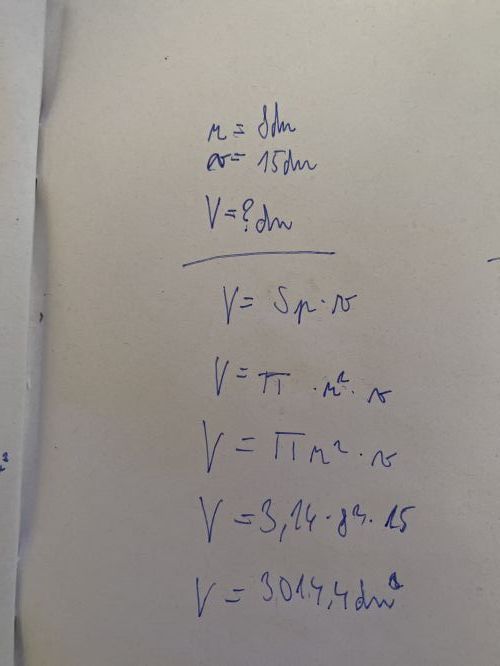 r = 8dm
v = 15dm
V = ? dm
V = Sp · v
V = π · r² · v
V = π r² · v
V = 3,14 · 8² · 15
V = 3014,4 dm³